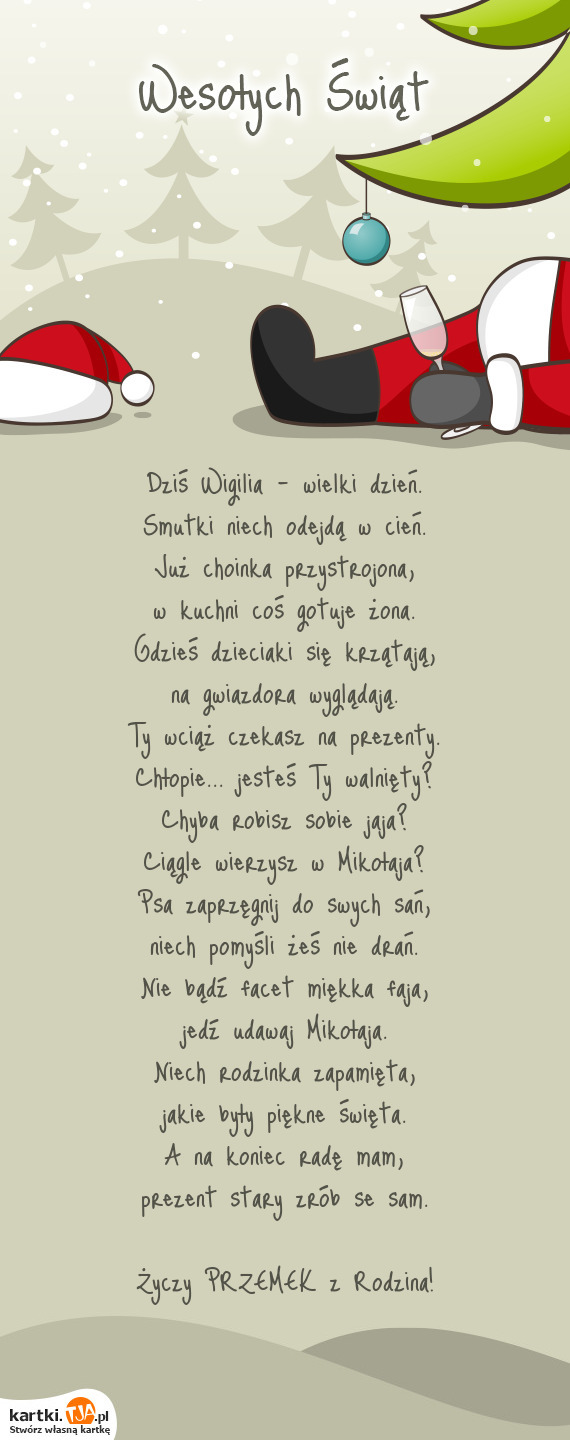 Wesołych Świąt
Dziś Wigilia - wielki dzień.
Smutki niech odejdą w cień.
Już choinka przystrojona,
w kuchni coś gotuje żona.
Gdzieś dzieciaki się krzątają,
na gwiazdora wyglądają.
Ty wciąż czekasz na prezenty.
Chłopie... jesteś Ty walnięty?
Chyba robisz sobie jaja?
Ciągle wierzysz w Mikołaja?
Psa zaprzęgnij do swych sań,
niech pomyśli żeś nie drań.
Nie bądź facet miękka faja,
jedź udawaj Mikołaja.
Niech rodzinka zapamięta,
jakie były piękne święta.
A na koniec radę mam,
prezent stary zrób se sam.
Życzy PRZEMEK z Rodzina!
kartki.TJA.pl
Stwórz własną kartkę